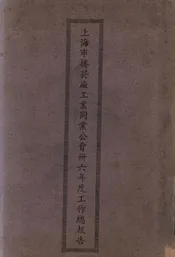 上海市捲菸廠工業同業公會卅六年度工作總報告